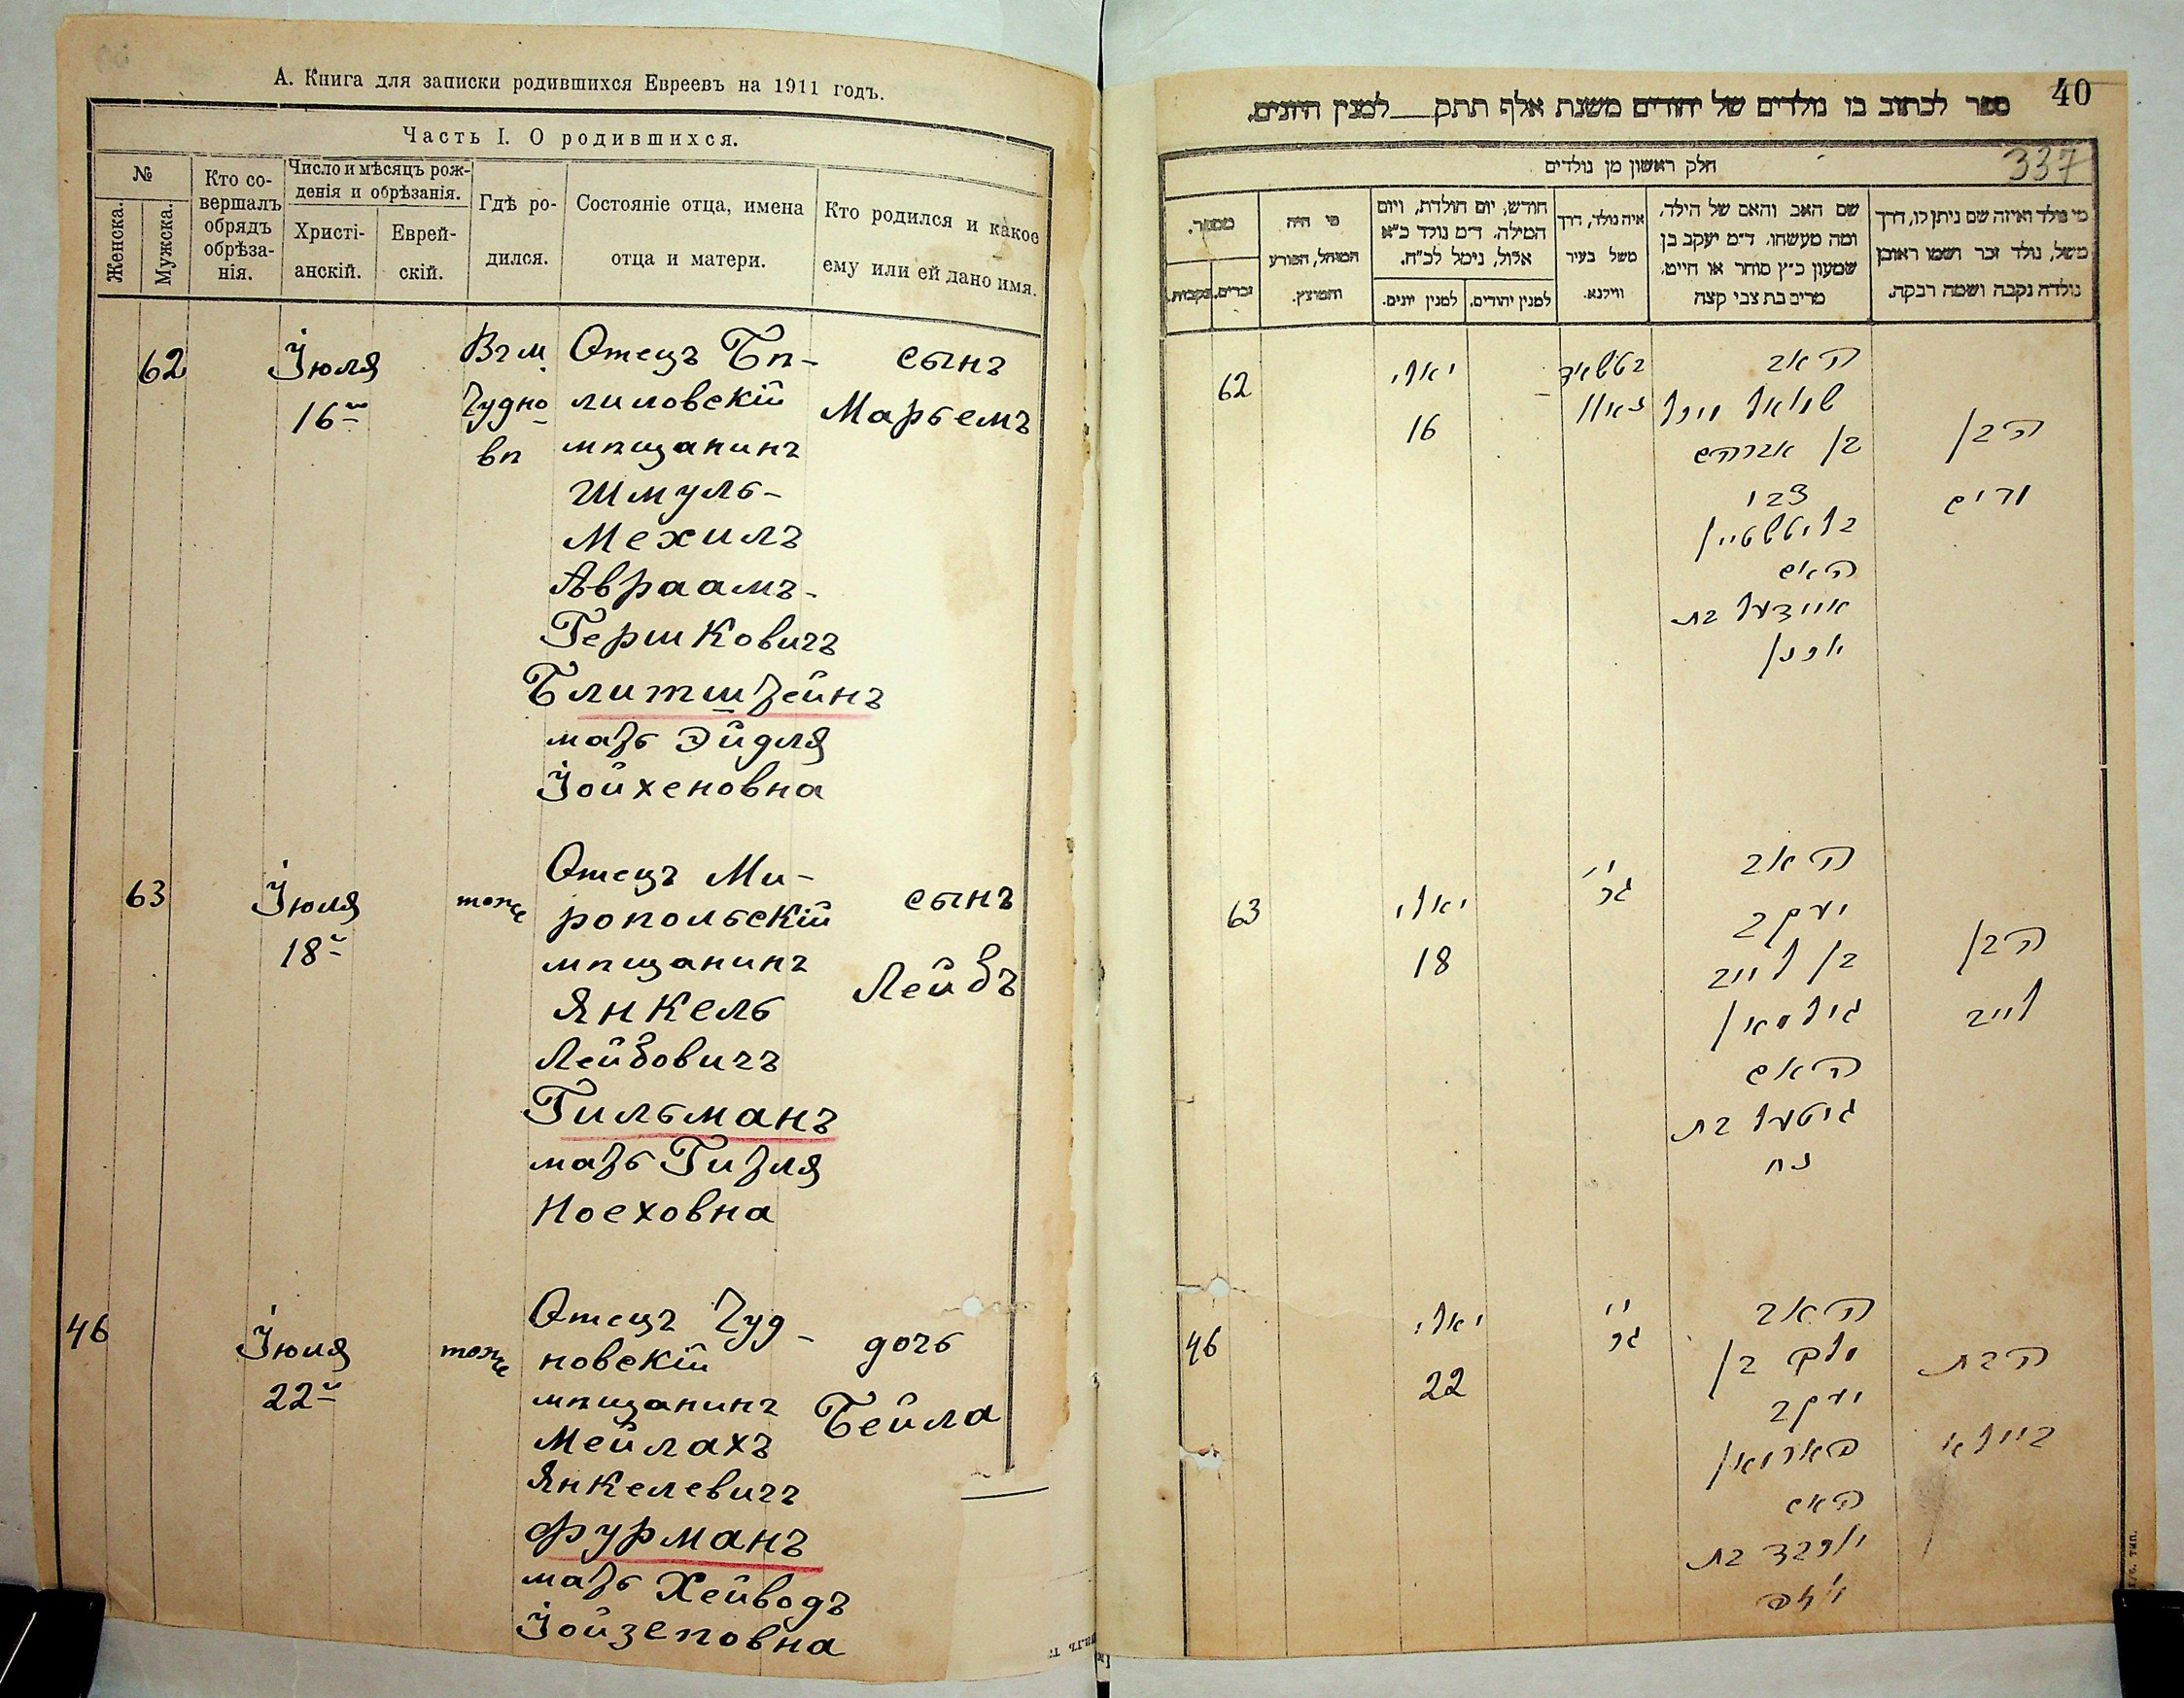 А. Книга для записки родившихся Евреевъ на 1911 годъ.
Часть I. О родившихся.
№
Женска.
Мужска.
Кто совершалъ обрядъ обрѣза-
нія.
Число и мѣсяцъ рож-
денія и обрѣзанія.
Христі-
анскій.
Еврей-
скій.
Гдѣ ро-
дился.
Состояніе отца, имена
отца и матери.
Кто родился и какое
ему или ей дано имя.
62
Іюля
16го
Въ м.
Чудно-
вѣ
Отецъ Бѣ-
лиловскій
мѣщанинъ
Шмуль-
Мехилъ
Авраамъ-
Гершковичъ
Блитштейнъ
мать Эйдля
Іойхеновна
сынъ
Марьемъ
63
Іюля
18го
тоже
Отецъ Ми-
ропольскій
мѣщанинъ
Янкель
Лейбовичъ
Гильманъ
мать Гитля
Ноеховна
сынъ
Лейбъ
46
Іюля
22го
тоже
Отецъ Чуд-
новскій
мѣщанинъ
Мейлахъ
Янкелевичъ
Фурманъ
мать Хейводъ
Іойзеповна
дочь
Бейла
40
ספר לכתוב בו נולדים של יהודים משנת אלף תתק___למנין היונים.
337
חלק ראשון מן נולדים
מספר.
זכרים.
נקבות.
מי היה
המוהל, הפורע
והמוצץ.
חודש, יום הולדת, ויום
המילה. ד״מ נולד כ״א
אלול, נימל לכ״ח.
למנין יונים.
למנין יהודים.
איה נולד, דרך
משל בעיר
ווילנא.
שם האב והאם של הילד,
ומה מעשהו. ד״מ יעקב בן
שמעון כ״ץ סוחר או חייט,
מרים בת צבי קצה
מי נולד ואיזה שם ניתן לו, דרך
משל, נולד זכר ושמו ראובן
נולדה נקבה ושמה רבקה.
62
יאלי
16
האב
בן אברהם
צבי
בליטשטיין
האם
איידעל בת
הבן
63
יאלי
18
האב
יעקב
בן לייב
גילמאן
האם
גיטעל בת
נח
הבן
לייב
46
יאלי
22
האב
מלך בן
יעקב
פארמאן
האם
יוכבד בת
הבת
ביילא